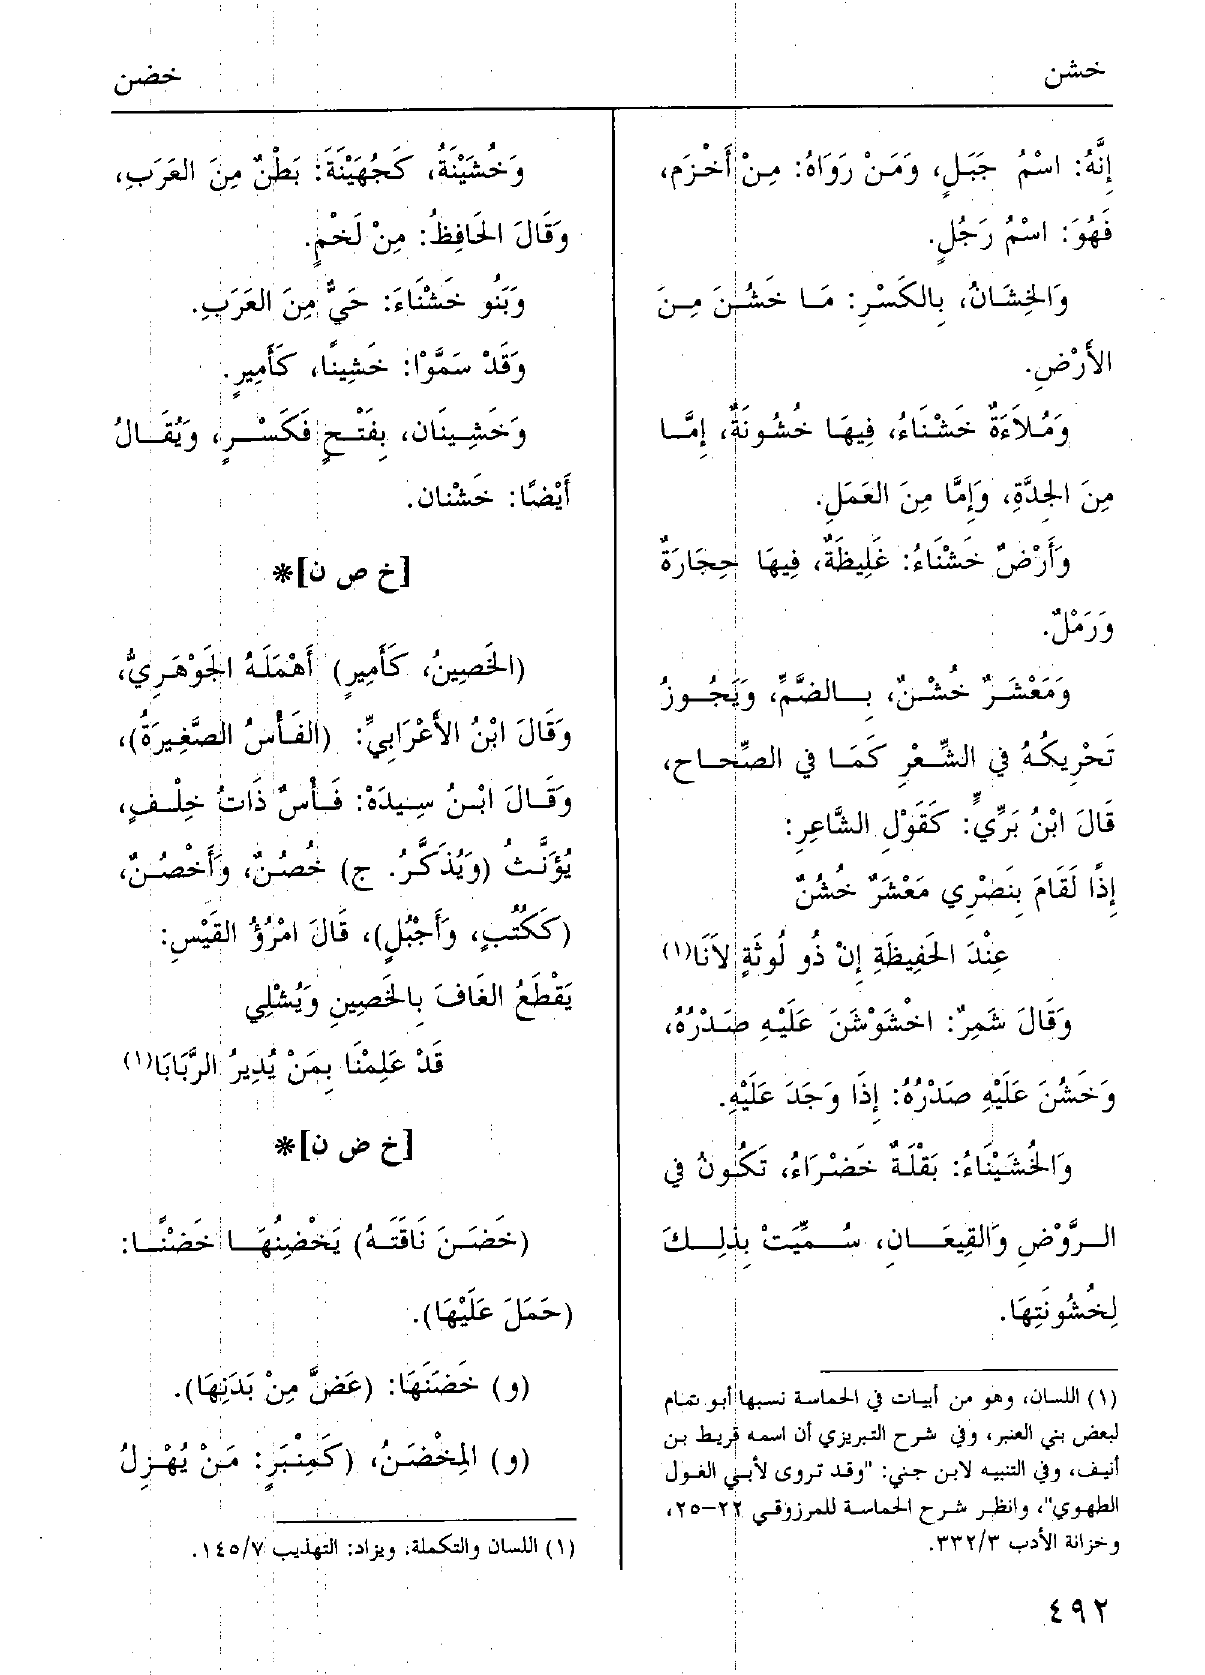 خشن
خضن
إِنَّهُ: اسْمُ جَبَلٍ، وَمَنْ رَوَاهُ: مِنْ أَخْزَم،
فَهُوَ: اسْمُ رَجُلٍ.
وَالخِشَانُ، بِالكَسْرِ: مَا خَشُنَ مِنَ
الأَرْضِ.
وَمُلاَءَةٌ خَشْنَاءُ، فِيهَا خُشُونَةٌ، إِمَّا
مِنَ الجِدَّةِ، وَإِمَّا مِنَ العَمَلِ.
وَأَرْضٌ خَشْنَاءُ: غَلِيظَةٌ، فِيهَا حِجَارَةٌ
وَرَمْلٌ.
وَمَعْشَرٌ خُشْنٌ، بِالضَّمِّ، وَيَجُوزُ
تَحْرِيكُهُ فِي الشِّعْرِ كَمَا فِي الصِّحَاح،
قَالَ ابْنُ بَرِّيٍّ: كَقَوْلِ الشَّاعِرِ:
إِذًا لَقَامَ بِنَصْرِي مَعْشَرٌ خُشُنٌ
عِنْدَ الحَفِيظَةِ إِنْ ذُو لُوثَةٍ لاَنَا(١)
وَقَالَ شَمِرٌ: اخْشَوْشَنَ عَلَيْهِ صَدْرُهُ،
وَخَشُنَ عَلَيْهِ صَدْرُهُ: إِذَا وَجَدَ عَلَيْهِ.
وَالخُشَيْنَاءُ: بَقْلَةٌ خَضْرَاءُ، تَكُونُ فِي
الرَّوْضِ وَالقِيعَانِ، سُمِّيَتْ بِذَلِكَ
لِخُشُونَتِهَا.
(١) اللسان، وهو من أبيات في الحماسة نسبها أبو تمام
لبعض بني العنبر، وفي شرح التبريزي أن اسمه قريط بن
أنيف، وفي التنبيه لابن جني: "وقد تروى لأبي الغول
الطهوي"، وانظر شرح الحماسة للمرزوقي ٢٢-٢٥،
وخزانة الأدب ٣٣٢/٣.
وَخُشَيْنَةُ، كَجُهَيْنَةَ: بَطْنٌ مِنَ العَرَبِ،
وَقَالَ الحَافِظُ: مِنْ لَخْمٍ.
وَبَنُو خَشْنَاءَ: حَيٌّ مِنَ العَرَبِ.
وَقَدْ سَمَّوْا: خَشِينًا، كَأَمِيرٍ.
وَخَشِينَان، بِفَتْحٍ فَكَسْرٍ، وَيُقَالُ
أَيْضًا: خَشْنان.
[خ ص ن]*
(الخَصِينُ، كَأَمِيرٍ) أَهْمَلَهُ الجَوْهَرِيُّ،
وَقَالَ ابْنُ الأَعْرَابِيِّ: (الفَأْسُ الصَّغِيرَةُ)،
وَقَالَ ابْنُ سِيدَهْ: فَأْسٌ ذَاتُ خِلْفٍ،
يُؤَنَّثُ (وَيُذَكَّرُ. ج) خُصُنٌ، وَأَخْصُنٌ،
(كَكُتُبٍ، وَأَجْبُلٍ)، قَالَ امْرُؤُ القَيْسِ:
يَقْطَعُ الغَافَ بِالخَصِينِ وَيُشْلِي
قَدْ عَلِمْنَا بِمَنْ يُدِيرُ الرَّبَابَا(١)
[خ ض ن]*
(خَضَنَ نَاقَتَهُ) يَخْضِنُهَا خَضْنًا:
(حَمَلَ عَلَيْهَا).
(و) خَضَنَهَا: (عَضَّ مِنْ بَدَنِهَا).
(و) المِخْضَنُ، (كَمِنْبَرٍ: مَنْ يُهْزِلُ
(١) اللسان والتكملة، ويزاد: التهذيب ١٤٥/٧.
٤٩٢